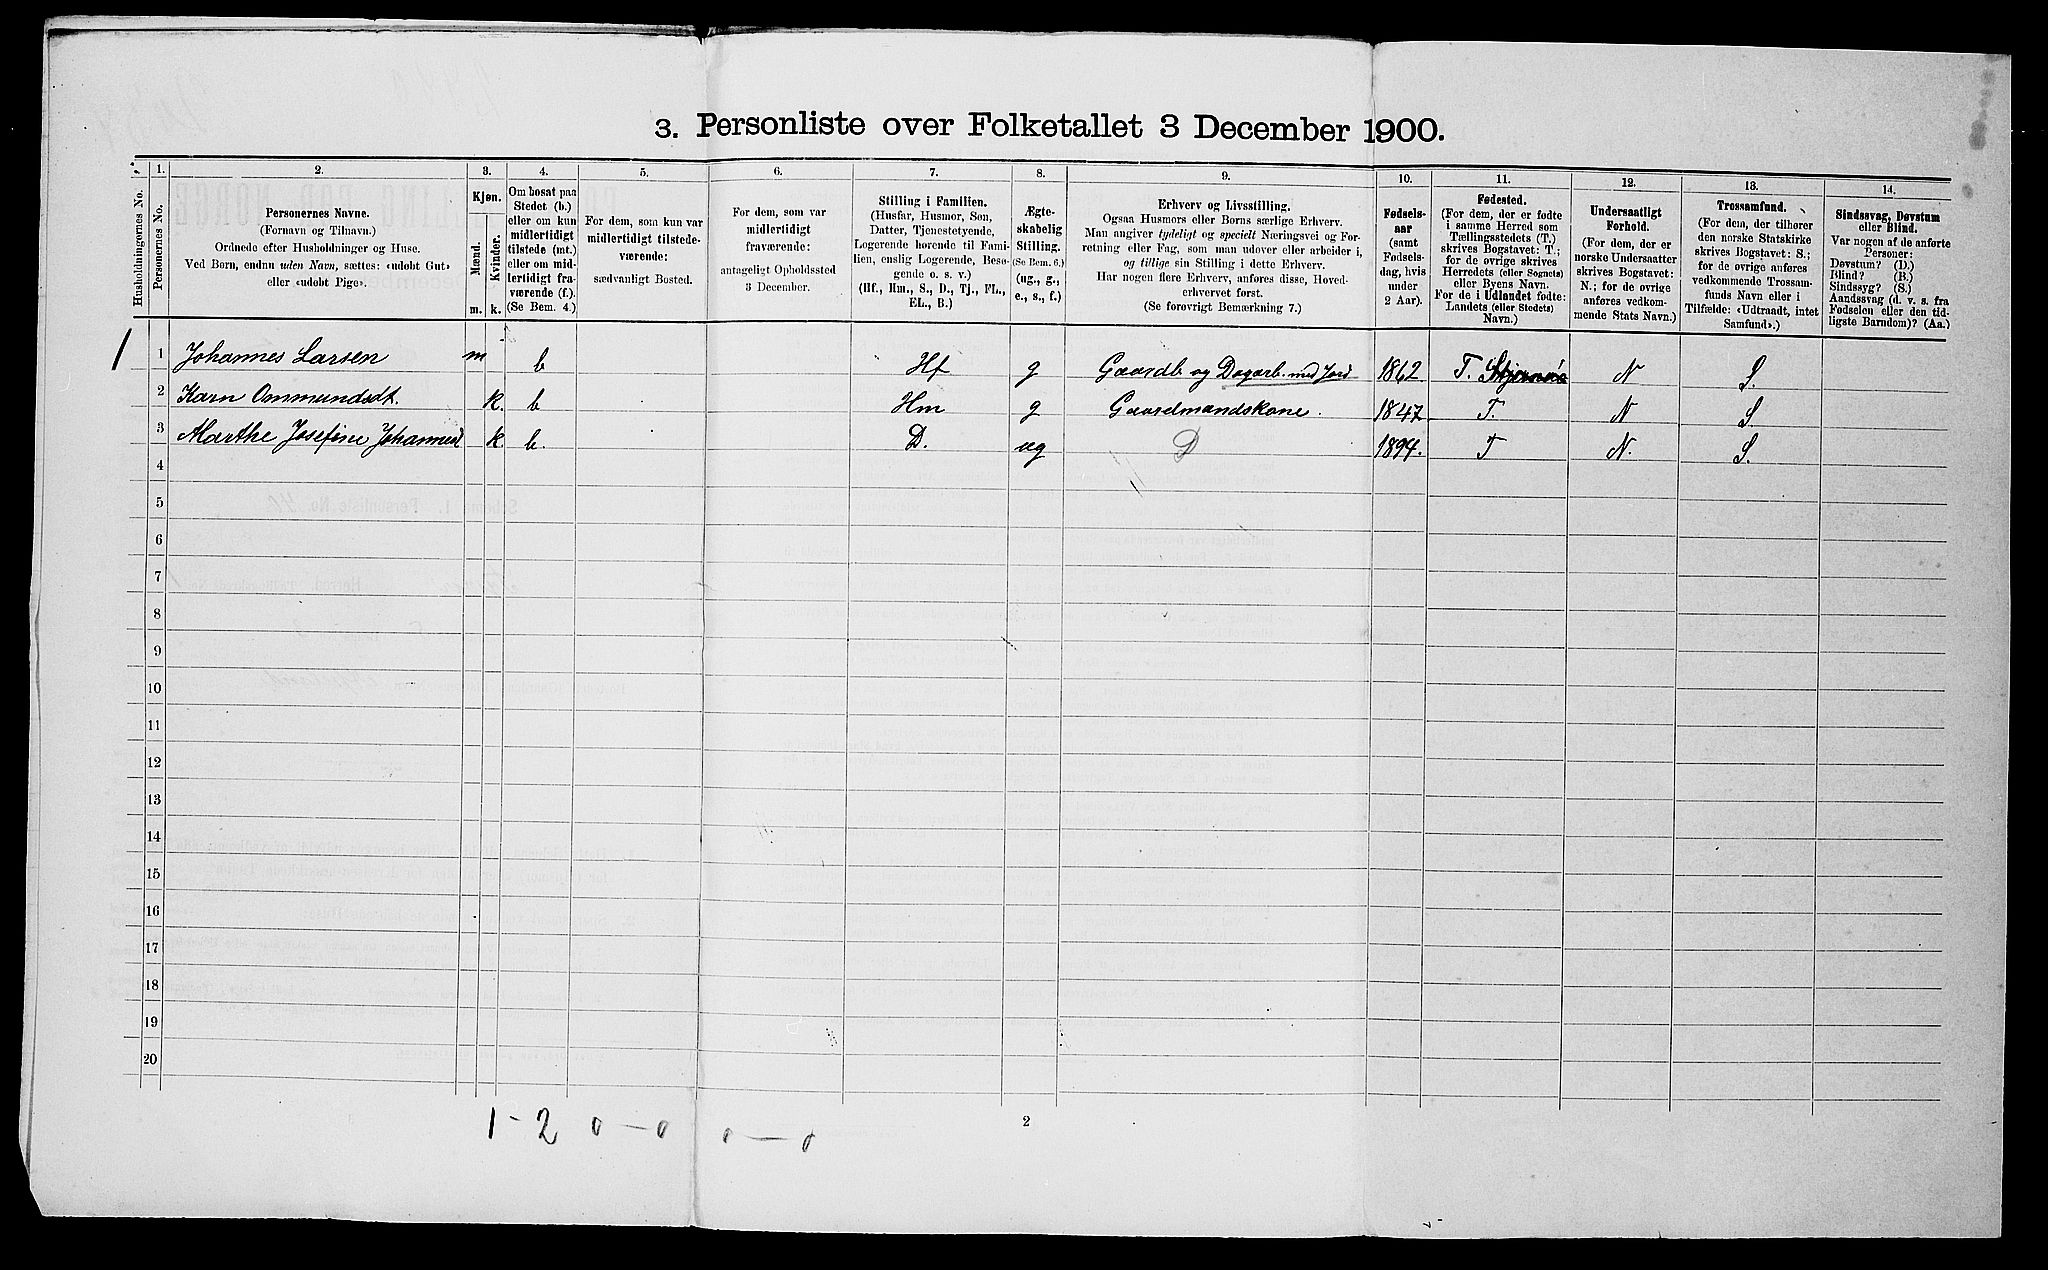 3. Personliste over Folketallet 3 December 1900.
1. 2. 3. 4. 5. 6. 7. 8. 9. 10. 11. 12. 13. 14.
Husholdningernes No.
Personernes No.
Personernes Navne.
(Fornavn og Tilnavn.)
Ordnede efter Husholdninger og Huse.
Ved Børn, endnu uden Navn, sættes: «udøbt Gut»
eller «udøbt Pige».
Kjøn.
Mænd.
Kvinder.
m. k.
Om bosat paa
Stedet (b.)
eller om kun
midlertidigt
tilstede (mt.)
eller om mid-
lertidigt fra-
værende (f.).
(Se Bem. 4.)
For dem, som kun var
midlertidigt tilstede-
værende:
sædvanligt Bosted.
For dem, som var
midlertidigt
fraværende:
antageligt Opholdssted
3 December.
Stilling i Familien.
(Husfar, Husmor, Søn,
Datter, Tjenestetyende,
Logerende hørende til Fami-
lien, enslig Logerende, Besø-
gende o. s. v.)
(Hf., Hm., S., D., Tj., FL.,
EL., B.)
Ægte-
skabelig
Stilling.
(Se Bem. 6.)
(ug., g.,
e., s., f.)
Erhverv og Livsstilling.
Ogsaa Husmors eller Børns særlige Erhverv.
Man angiver tydeligt og specielt Næringsvei og For-
retning eller Fag, som man udøver eller arbeider i,
og tillige sin Stilling i dette Erhverv.
Har nogen flere Erhverv, anføres disse, Hoved-
erhvervet først.
(Se forøvrigt Bemærkning 7.)
Fødsels-
aar
(samt
Fødsels-
dag, hvis
under
2 Aar).
Fødested.
(For dem, der er fødte
i samme Herred som
Tællingsstedets (T.)
skrives Bogstavet: T.;
for de øvrige skrives
Herredets (eller Sognets)
eller Byens Navn.
For de i Udlandet fødte:
Landets (eller Stedets)
Navn.)
Undersaatligt
Forhold.
(For dem, der er
norske Undersaatter
skrives Bogstavet:
N.; for de øvrige
anføres vedkom-
mende Stats Navn.)
Trossamfund.
(For dem, der tilhører
den norske Statskirke
skrives Bogstavet: S.;
for de øvrige anføres
vedkommende Trossam-
funds Navn eller i
Tilfælde: «Udtraadt, intet
Samfund».)
Sindssvag, Døvstum
eller Blind.
Var nogen af de anførte
Personer:
Døvstum? (D.)
Blind? (B.)
Sindssyg? (S.)
Aandssvag (d. v. s. fra
Fødselen eller den tid-
ligste Barndom)? (Aa.)
1 1 Johannes Larsen m b Hf g Gaardb og Dagarb. med Jord 1862 T. N S.
2 Karn Ommundsdt. k. b Hm g Gaardmandskone. 1847 T. N S.
3 Marthe Josefine Johannesd k b. D. ug D 1894. T N. S.
4
5
6
7
8
9
10
11
12
13
14
15
16
17
18
19
20
1 - 2 0 - 0 0 - 0
2